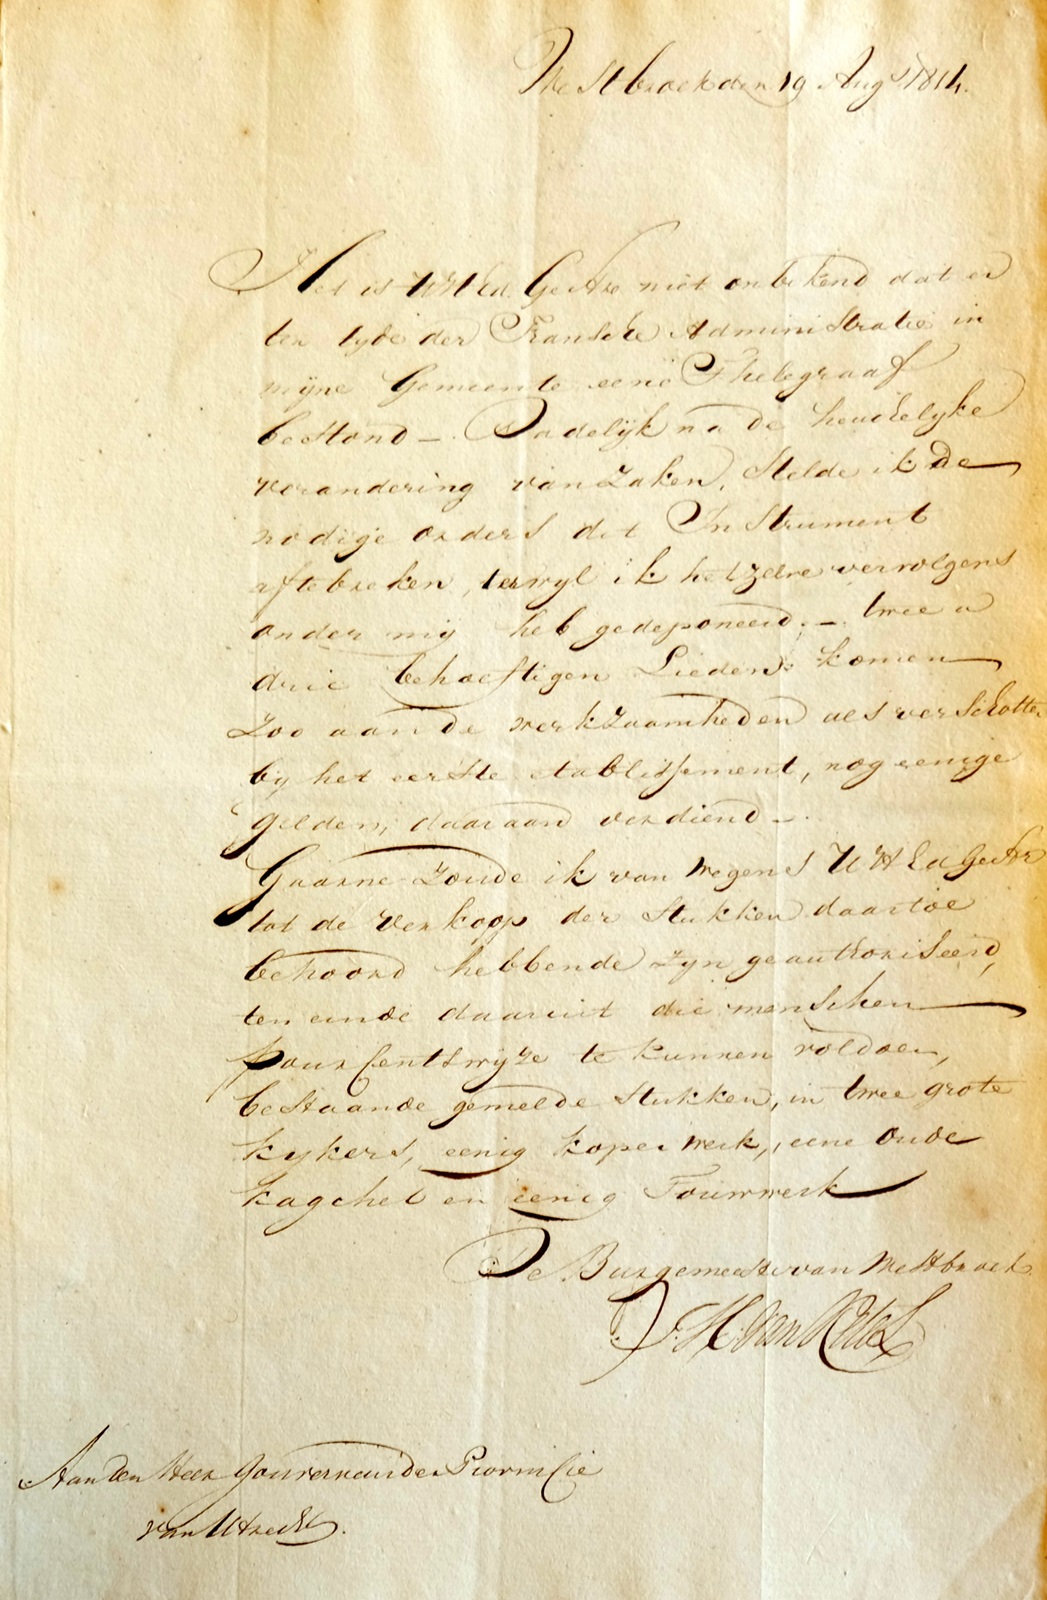 Westbroek den 19 Augs 1814.
Het is UWEd. GeStr niet onbekend dat er
ten tyde der Fransche Administratie in
mijne Gemeente eene Thelegraaf
bestond _. Dadelijk na de heuchelyke
verandering van Zaken, Stelde ik de
nodige orders dit Instrument
afte breken, terwyl ik hetzelve vervolgens
onder mij heb gedeponeerd. _. twee a
drie behoeftigen Lieden komen
Zoo aan de werkzaamheden als verschotten
by het eerste etablissement, nog eenige
gelden, daaraan verdiend _.
Gaarne Zoude ik van wegens UWEdGeStr
tot de Verkoop der Stukken daartoe
behoord hebbende zyn geauthoriseerd,
ten einde daaruit die menschen
pour Centswyze te kunnen voldoen,
bestaande gemelde Stukken, in twee grote
kykers, eenig koper werk, eene oude
kagchel en eenig Touwwerk
De Burgemeester van Westbroek
J. H. van
Aan den Heer Gouverneur der Provincie
van Utrecht.